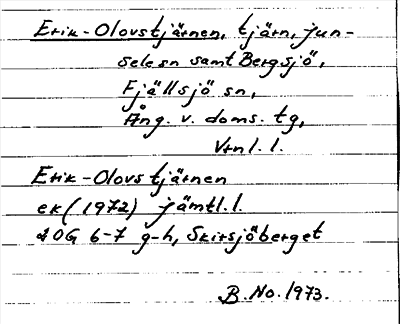 Erik-Olovstjärnen, tjärn, Jun-
selesn samt Bergsjö,
Fjällsjö sn,
Ång. v. doms. tg,
Vrnl. l.
Erik-Olovstjärnen
ek (1972) jämtl. l.
20G 6-7 g-h, Skirsjöberget
B. No. 1973.